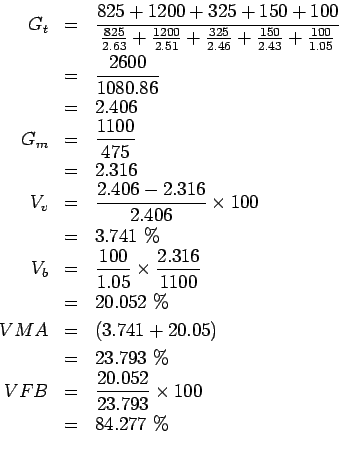 G_t = \frac{825 + 1200 + 325 + 150 + 100}{\frac{825}{2.63} + \frac{1200}{2.51} + \frac{325}{2.46} + \frac{150}{2.43} + \frac{100}{1.05}}
= \frac{2600}{1080.86}
= 2.406
G_m = \frac{1100}{475}
= 2.316
V_v = \frac{2.406 - 2.316}{2.406} × 100
= 3.741 %
V_b = \frac{100}{1.05} × \frac{2.316}{1100}
= 20.052 %
VMA = (3.741 + 20.05)
= 23.793 %
VFB = \frac{20.052}{23.793} × 100
= 84.277 %